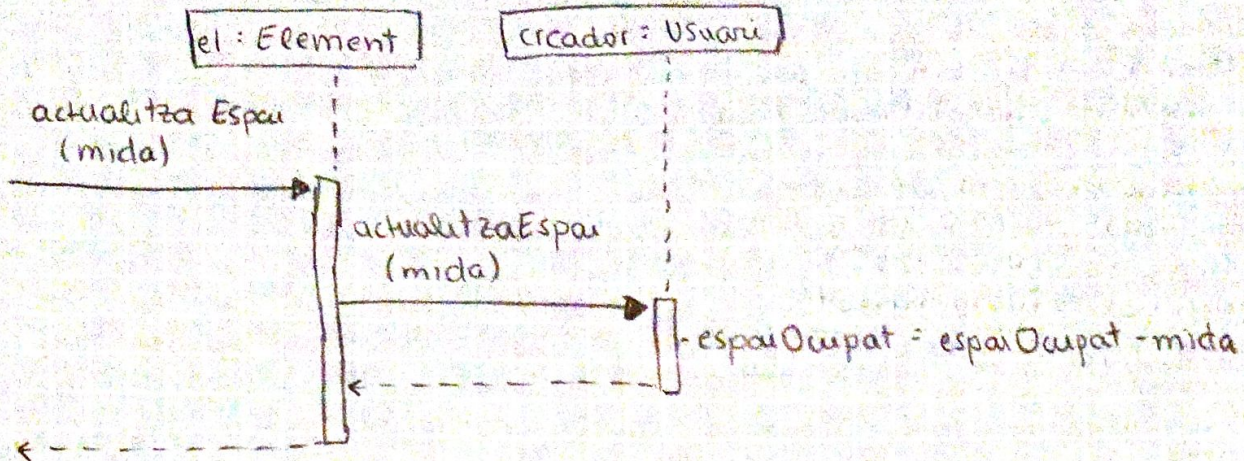 el : Element
creador : Usuari
actualitza Espai
(mida)
actualitzaEspai
(mida)
- espaiOcupat = espaiOcupat - mida